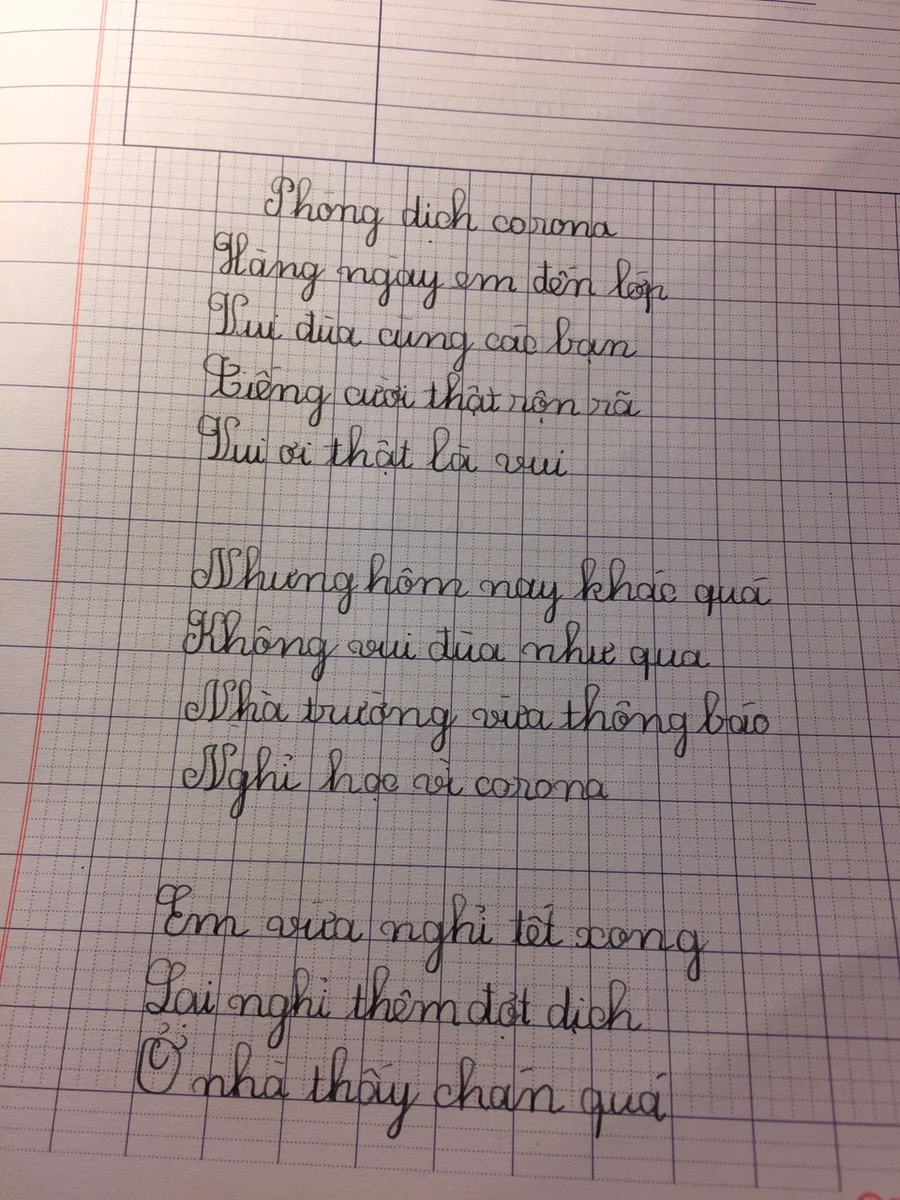 Phòng dịch corona
Hàng ngày em đến lớp
Vui đùa cùng các bạn
Tiếng cười thật rộn rã
Vui ơi thật là vui
Nhưng hôm nay khác quá
Không vui đùa như qua
Nhà trường vừa thông báo
Nghỉ học vì corona
Em vừa nghỉ tết xong
Lại nghỉ thêm đợt dịch
Ở nhà thấy chán quá